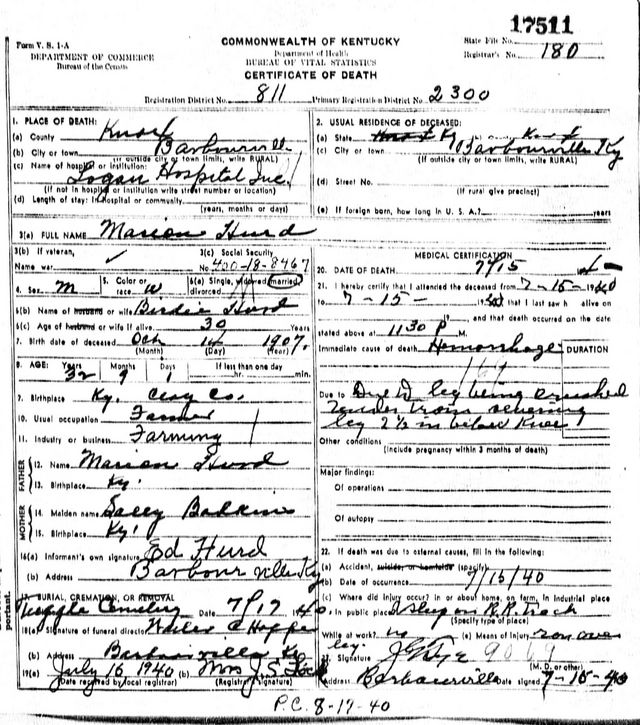 17511
Form V. S. 1-A
COMMONWEALTH OF KENTUCKY
State File No.
DEPARTMENT OF COMMERCE
Bureau of the Census
Department of Health
BUREAU OF VITAL STATISTICS
CERTIFICATE OF DEATH
Registrar's No. 180
Registration District No. 811 Primary Registration District No. 2300
1. PLACE OF DEATH:
(a) County Knox
(b) City or town Barbourville
(If outside city or town limits, write RURAL)
(c) Name of hospital or institution:
Logan Hospital Inc.
(If not in hospital or institution write street number or location)
(d) Length of stay: In hospital or community
(years, months or days)
2. USUAL RESIDENCE OF DECEASED:
(a) State Ky (b) County Knox
(c) City or town Barbourville Ky
(If outside city or town limits, write RURAL)
(d) Street No.
(If rural give precinct)
(e) If foreign born, how long in U. S. A.? years
3(a) FULL NAME Marion Hurd
3(b) If veteran,
Name war
3(c) Social Security
No. 400-18-8467
4. Sex M
5. Color or race W
6(a) Single, widowed, married, divorced
6(b) Name of husband or wife Birdie Hurd
6(c) Age of husband or wife if alive 30 Years
7. Birth date of deceased Oct 14 1907
(Month) (Day) (Year)
8. AGE: Years Months Days If less than one day
32 9 1 hr. min.
9. Birthplace Ky. Clay Co.
10. Usual occupation Farmer
11. Industry or business Farming
FATHER
12. Name Marion Hurd
13. Birthplace Ky.
MOTHER
14. Maiden name Sally
15. Birthplace Ky.
16(a) Informant's own signature Ed Hurd
(b) Address Barbourville Ky
17. BURIAL, CREMATION, OR REMOVAL
Cemetery Date 7/17 1940
18(a) Signature of funeral director
(b) Address Barbourville Ky
19(a) July 16 1940 (b) Mrs J. S.
(Date received by local registrar) (Registrar's signature)
MEDICAL CERTIFICATION
20. DATE OF DEATH 7/15
21. I hereby certify that I attended the deceased from 7-15-1940
to 7-15- 1940 that I last saw h alive on
, and that death occurred on the date
stated above at 11 30 P M.
Immediate cause of death Hemorrhage DURATION
Due to Due to leg being crushed
under train severing
leg 2 1/2 in below knee
Other conditions
(Include pregnancy within 3 months of death)
Major findings:
Of operations
Of autopsy
22. If death was due to external causes, fill in the following:
(a) Accident, suicide, or homicide (specify)
(b) Date of occurrence 7/15/40
(c) Where did injury occur? in or about home, on farm, in industrial place
In public place? Asleep on R.R. Track
(Specify type of place)
While at work? no (e) Means of Injury ran over
leg.
23. Signature
(M. D. or other)
Address Barbourville Date signed 7-15-40
P.C. 8-17-40
portant.